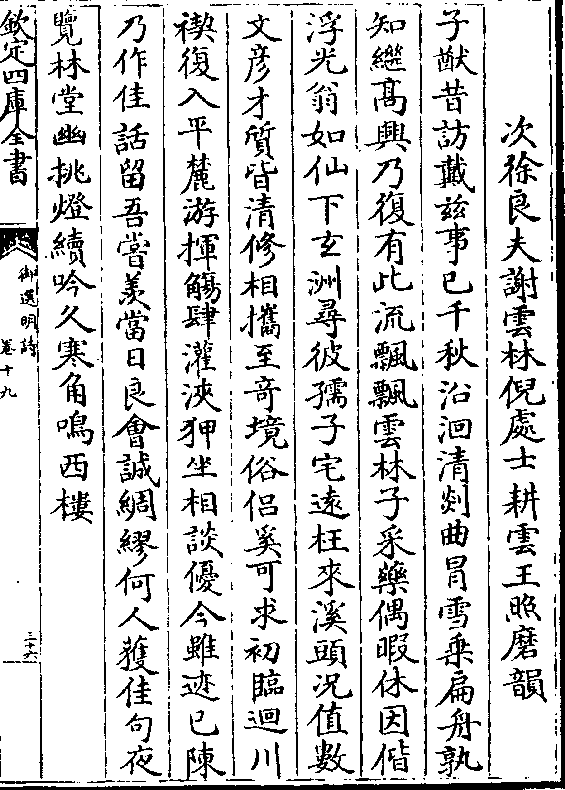 次徐良夫謝雲林倪處士耕雲王照磨韻
子猷昔訪戴兹事已千秋沿洄清剡曲冐雪乗扁舟孰
知繼髙興乃復有此流飄飄雲林子采藥偶暇休因偕
浮光翁如仙下玄洲尋彼孺子宅逺枉來溪頭况值數
文彦才質皆清修相攜至竒境俗侣奚可求初臨迴川
禊復入平麓游揮觴肆灌浹狎坐相談優今雖迹已陳
乃作佳話留吾嘗羡當日良㑹誠綢繆何人獲佳句夜
覽林堂幽挑燈續吟久寒角鳴西樓
欽定四庫全書
御選明詩
卷十九
三十六